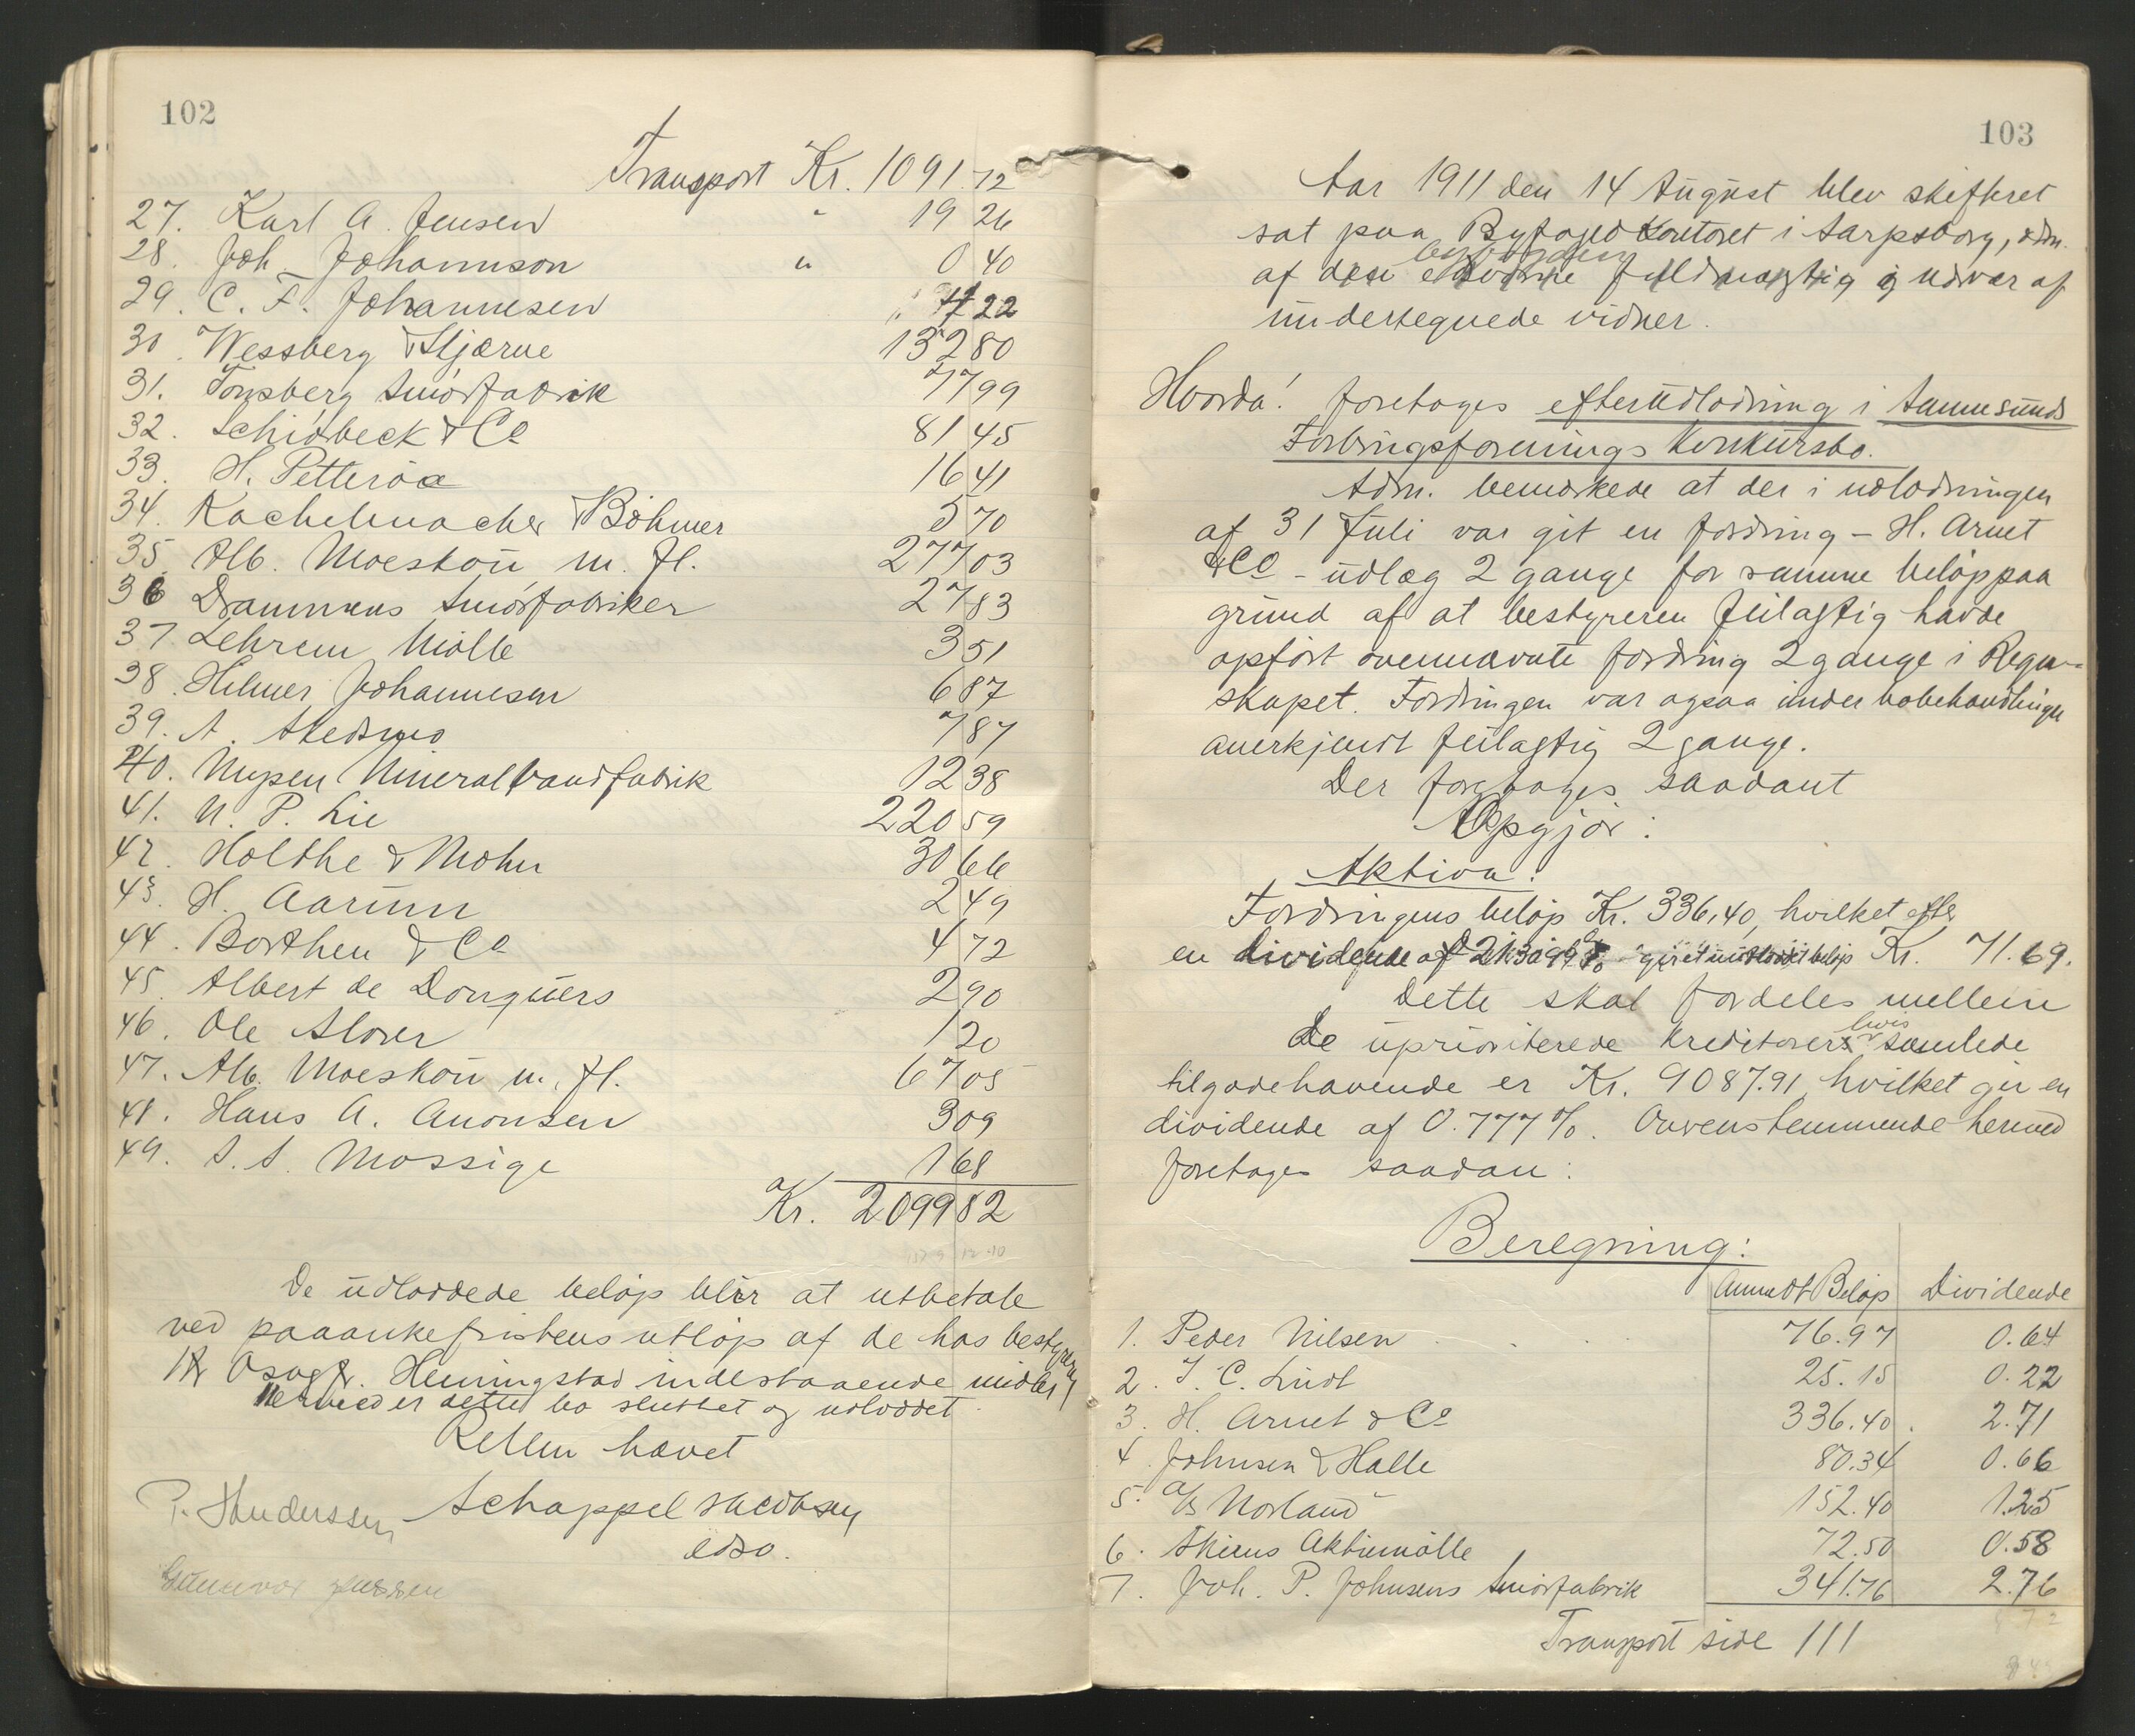 102
Transport Kr. 1091.72
27. Karl A. Jensen " 19 26
28. Joh. Johannson " 0 40
29. C. F. Johannesen 22
30. Wessberg & Stjærne 132 80
31. Tønsberg Smørfabrik 77 99
32. Schiøbeck & Co 81 45
33. H. Petterøe 16 41
34. Kachelmacher & Böhmer 5 70
35. Alb. Moeskau m. fl. 277 03
36 Drammens Smørfabriker 27 83
37 Lehrem Mølle 3 51
38. Hilmer Johannesen 6 87
39. A. Skedsmo 7 87
40. Mysen Mineralvandfabrik 12 38
41. N. P. Lie 220 59
42. Holthe & Mohn 30 66
43. H. Aarum 2 49
44. Borthen & Co 4 72
45. Albert de Donquers 2 90
46. Ole Alorer 1 20
47. Alb. Moeskau m. fl. 67 05
48. Hans A. Amonsen 3 09
49. S. S. Mossige 1 68
Kr. 2099 82
De udloddede beløp blir at utbetale
ved paaankefristens utløp af de hos bestyreren
Osagf. Henningstad indestaaende midler
Hermed er dette bo sluttet og udloddet.
Retten hævet
Schappel Jacobsen
edso.
P. Handerssen
Gunnvor Jenssen
103
Aar 1911 den 14 August blev skifteret
sat paa Byfogedkontoret i Sarpsborg, adm.
af den edsvorne fuldmægtig i nærvær af
byfogden
undertegnede vidner.
Hvorda! foretoges efterudlodning i Sannesunds
Forbrugsforenings Konkursbo.
Adm. bemærkede at der i udlodningen
af 31 Juli var git en fordring – H. Arnet
& Co – udlæg 2 gange for samme beløp paa
grund af at bestyreren feilagtig havde
opført ovennævnte fordring 2 gange i Regn-
skapet. Fordringen var ogsaa under bobehandlingen
anerkjendt feilagtig 2 gange.
Der foretoges saadant
Opgjør:
Aktiva:
Fordringens beløp Kr. 336,40, hvilket efter
en dividende af gir et utloddet beløp Kr. 71.69.
Dette skal fordeles mellem
De uprioriterede kreditorer hvis samlede
tilgodehavende er Kr. 9087.91 hvilket gir en
dividende af 0.777%. Overensstemmende hermed
foretoges saadan:
Beregning:
Anmeldt Beløp Dividende
1. Peder Nilsen 76.97 0.64
2. J. C. Lindt 25.15 0.22
3. H. Arnet & Co 336.40 2.71
4. Johnsen & Halle 80.34 0.66
5. A/S Norland 152.40 1.25
6. Skiens Aktiemølle 72.50 0.58
7. Joh. P. Johnsens Smørfabrik 341.76 2.76
Transport side 111